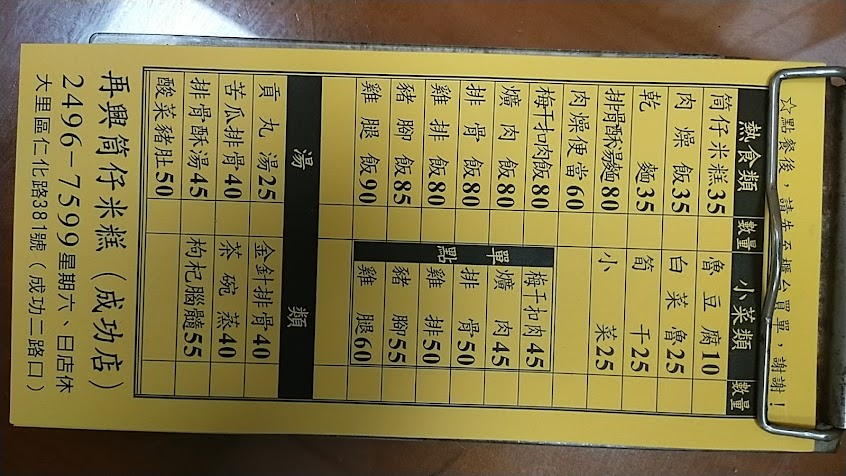 ☆點餐後，請先至櫃台買單，謝謝！
熱食類 數量 小菜類 數量
筒仔米糕35 魯豆腐10
肉燥飯35 白菜魯25
乾麵35 筍干25
排骨酥湯麵80 小菜25
肉燥便當60
梅干扣肉飯80 梅干扣肉45
爌肉飯80 爌肉45
排骨飯80 排骨50
雞排飯80 雞排50
豬腳飯85 豬腳55
雞腿飯90 雞腿60
單點
湯類
貢丸湯25 金針排骨40
苦瓜排骨40 茶碗蒸40
排骨酥湯45 枸杞腦髓55
酸菜豬肚50
再興筒仔米糕（成功店）
2496-7599 星期六、日店休
大里區仁化路381號（成功二路口）